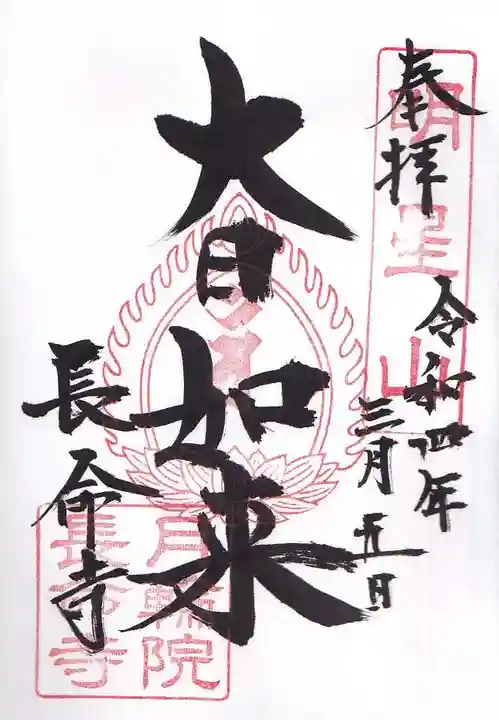 奉拝
令和四年
三月五日
大日如来
長命寺
明星山
月輪院
長命寺